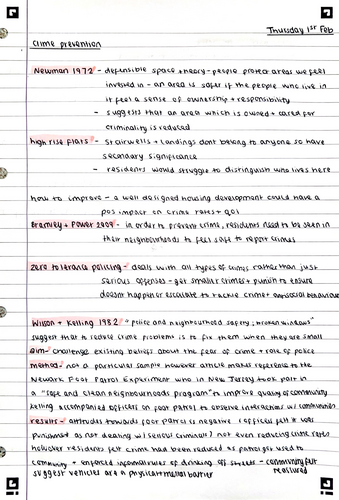 Thursday 1st Feb
crime prevention
Newman 1972 - defensible space theory - people protect areas we feel
invested in - an area is safer if the people who live in
it feel a sense of ownership + responsibility
- suggests that an area which is owned + cared for
criminality is reduced
high rise flats - stairwells + landings dont belong to anyone so have
secondary significance
- residents would struggle to distinguish who lives here
how to improve - a well designed housing development could have a
pos impact on crime rates + qol
Bramley + Power 2009 - in order to prevent crime, residents need to be seen in
their neighbourhoods to feel safe to report crimes
zero tolerance policing - deals with all types of crimes rather than just
serious offenses - get smaller crimes + punish to ensure
doesnt happen or escalate to tackle crime + antisocial behaviour
Wilson + Kelling 1982 "police and neighbourhood safety: broken windows"
suggest that to reduce crime problems is to fix them when they are small
aim - challenge existing beliefs about the fear of crime + role of police
method - not a particular sample however article makes reference to the
Newark Foot Patrol Experiment who in New Jersey took part in
a "safe and clean neighbourhoods program" to improve quality of community
Kelling accompanied officers on foot patrol to observe interactions w/ communities
results - attitudes towards foot patrol is negative (officers felt it was
punishment as not dealing w/ serious criminals) not even reducing crime rates
however residents felt crime had been reduced as patrols used to
community + enforced informal rules of drinking of streets - community felt
suggest vehicles are a physical + moral barrier reassured